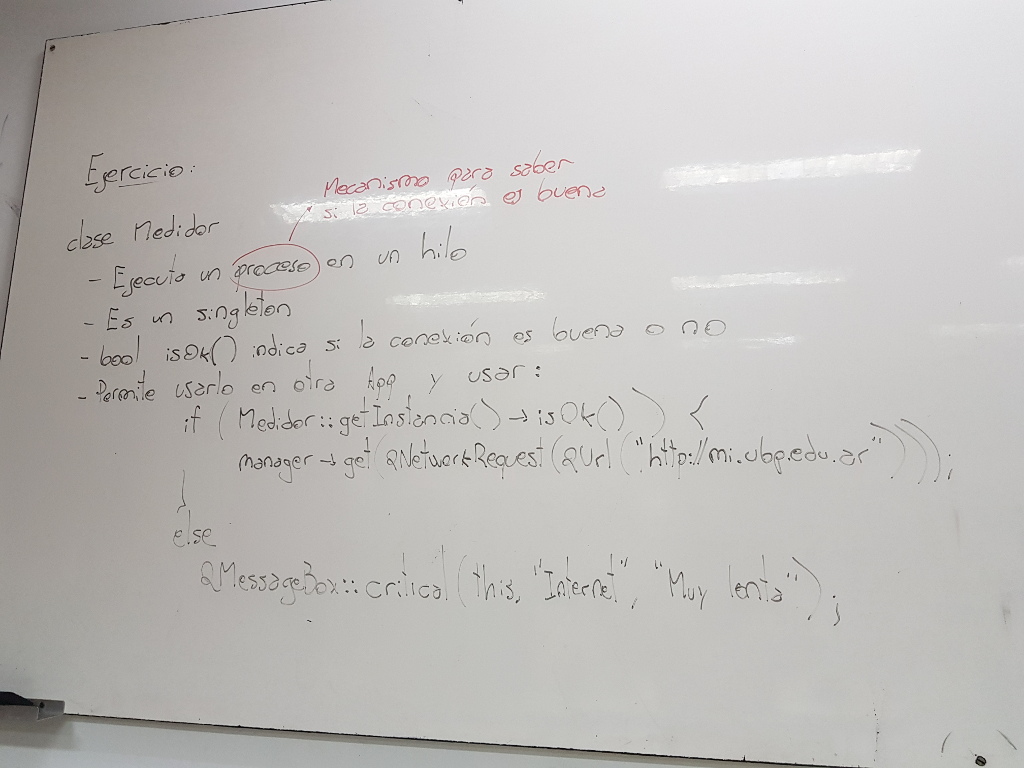 Ejercicio:
Mecanismo para saber
si la conexión es buena
clase Medidor
- Ejecuta un proceso en un hilo
- Es un singleton
- bool isOk() indica si la conexión es buena o no
- Permite usarlo en otra App y usar:
if ( Medidor::getInstancia()→isOk() ) {
manager→get(QNetworkRequest(QUrl("http://mi.ubp.edu.ar")));
}
else
QMessageBox::critical(this, "Internet", "Muy lenta");